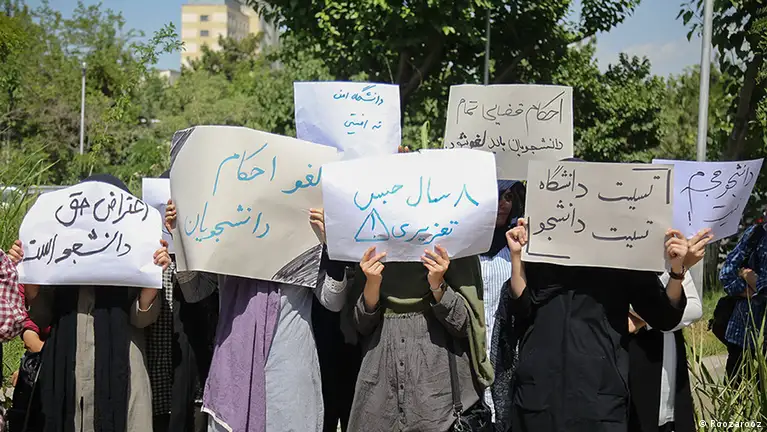 دانشگاه امن
نه امنیتی
احکام قضایی تمام
دانشجویان باید لغو شود
اعتراض حق
دانشجو است
لغو احکام
دانشجویان
۸ سال حبس
تعزیری ⚠!
تسیت دانشگاه
تسیت دانشجو
دانشجو مجرم
نیست!
© Roozarooz